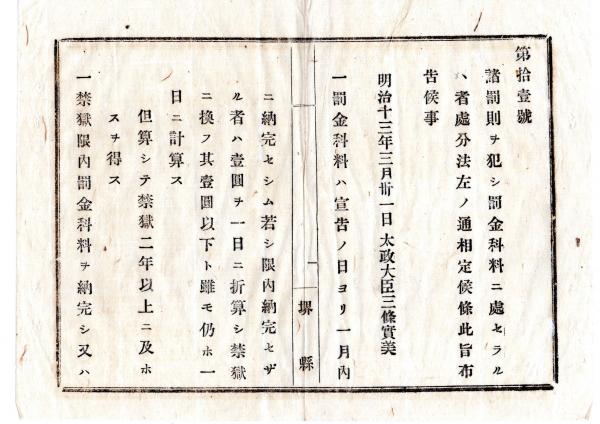 第拾壹號
諸罰則ヲ犯シ罰金科料ニ處セラル
ヽ者處分法左ノ通相定候條此旨布
告候事
明治十三年三月卅一日 太政大臣三條實美
一罰金科料ハ宣告ノ日ヨリ一月內
堺縣
ニ納完セシム若シ限內納完セザ
ル者ハ壹圓ヲ一日ニ折算シ禁獄
ニ換フ其壹圓以下ト雖モ仍ホ一
日ニ計算ス
但算シテ禁獄二年以上ニ及ホ
スヲ得ス
一禁獄限內罰金科料ヲ納完シ又ハ